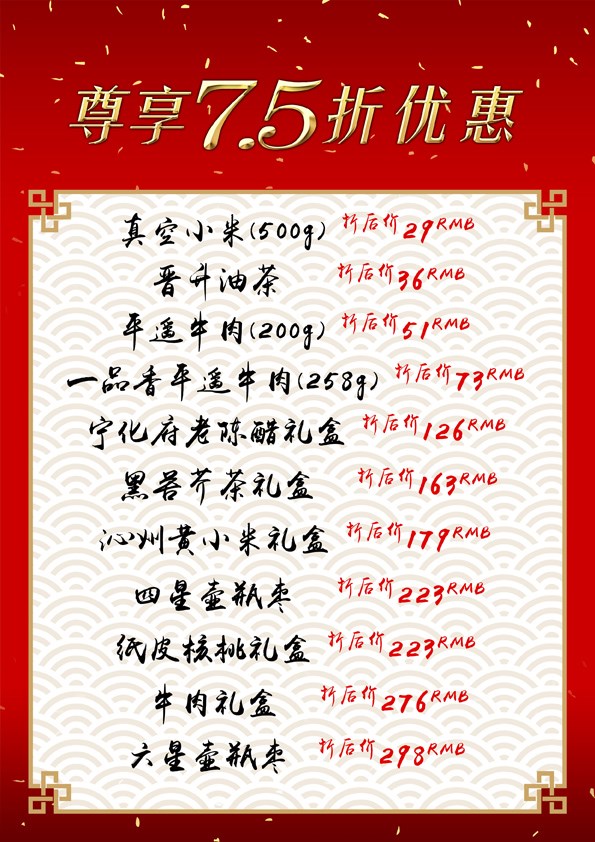 尊享7.5折优惠
真空小米(500g) 折后价29RMB
晋升油茶 折后价36RMB
平遥牛肉(200g) 折后价51RMB
一品香平遥牛肉(258g) 折后价73RMB
宁化府老陈醋礼盒 折后价126RMB
黑苦荞茶礼盒 折后价163RMB
沁州黄小米礼盒 折后价179RMB
四星壶瓶枣 折后价223RMB
纸皮核桃礼盒 折后价223RMB
牛肉礼盒 折后价276RMB
六星壶瓶枣 折后价298RMB